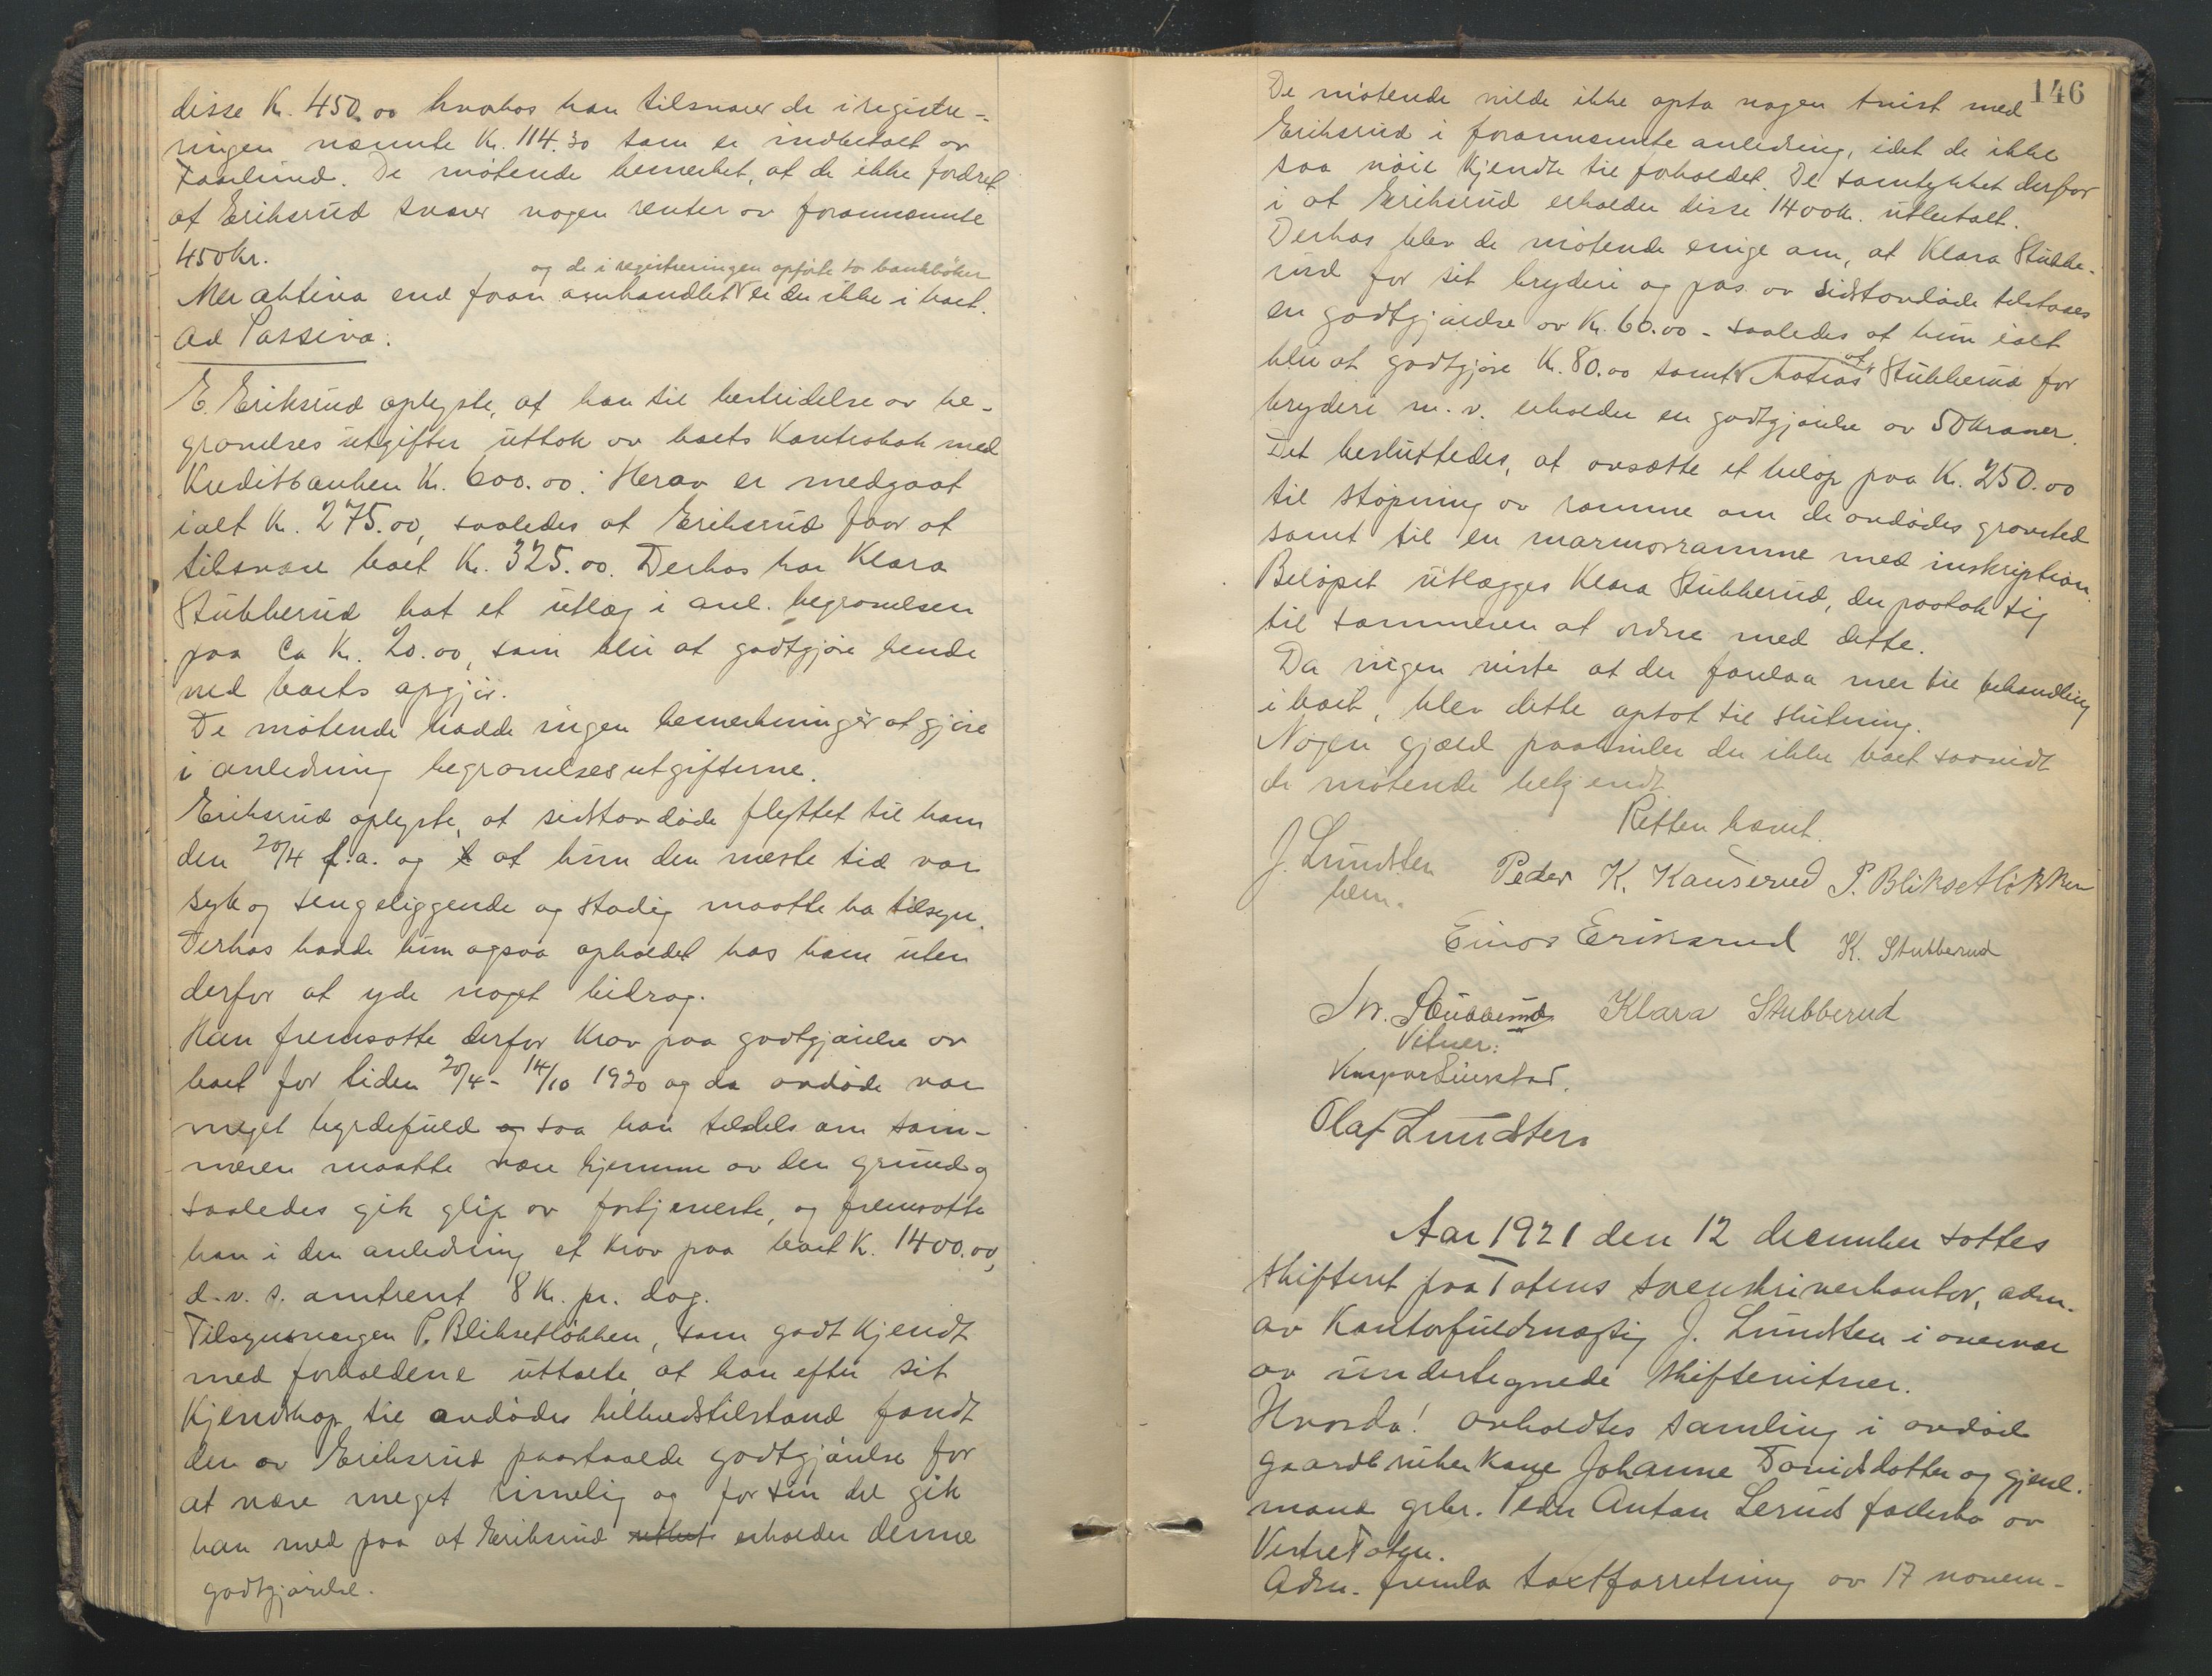 disse Kr. 450.00 hvorhos han tilsvarer de i registre-
ringen nævnte Kr. 114.30 som er indbetalt av
Faarlund. De møtende bemerket, at de ikke fordret
at Eriksrud svarer nogen renter av forannævnte
450 kr.
og de i registreringen opførte to bankbøker
Mer aktiva end foran omhandlet er der ikke i boet.
Ad Passiva.
E. Eriksrud oplyste, at han til bestridelse av be-
gravelses utgifter uttok av boets Kontrabok med
Kreditbanken Kr. 600.00. Herav er medgaat
ialt Kr. 275.00, saaledes at Eriksrud faar at
tilsvare boet Kr. 325.00. Derhos har Klara
Stubberud hat et utlæg i anl. begravelsen
paa Ca Kr. 20.00, som blir at godtgjøre hende
ved boets opgjør.
De møtende hadde ingen bemerkninger at gjøre
i anledning begravelsesutgifterne.
Eriksrud oplyste, at sidstavdøde flyttet til ham
den 20/4 f.a. og at hun den meste tid var
syk og sengeliggende og stadig maatte ha tilsyn.
Derhos hadde hun ogsaa opholdet hos ham uten
derfor at yde noget bidrag.
Han fremsatte derfor Krav paa godtgjørelse av
boet for tiden 20/4 - 14/10 1920 og da avdøde var
meget byrdefuld og saa han tildels om som-
meren maatte være hjemme av den grund og
saaledes gik glip av fortjeneste, og fremsatte
han i den anledning et Krav paa boet K. 1400.00,
d.v.s. omtrent 8 Kr. pr. dag.
Tilsynsvergen P. Blikset løkken, som godt Kjendt
med forholdene uttalte, at han efter sit
Kjendskap til avdødes helbredstilstand fandt
den av Eriksrud paastaaede godtgjørelse for
at være meget rimelig og for sin del gik
han med paa at Eriksrud erholder denne
godtgjørelse.
146
De møtende vilde ikke opta nogen tvist med
Eriksrud i forannævnte anledning, idet de ikke
saa nøie Kjendte til forholdet. De samtykket derfor
i at Eriksrud erholder disse 1400 kr. utbetalt.
Derhos blev de møtende enige om, at Klara Stubbe-
rud for sit bryderi og pas av sidstavdøde tilstaaes
en godtgjørelse av Kr. 60.00 - saaledes at hun ialt
blir at godtgjøre Kr. 80.00 samt at Matias Stubberud for
bryderi m.v. erholder en godtgjørelse av 50 kroner.
Det besluttedes, at avsætte et beløp paa Kr. 250.00
til støpning av ramme om de avdødes gravsted
samt til en marmorramme med inskription.
Beløpet utlægges Klara Stubberud, der paatok sig
til sommeren at ordne med dette.
Da ingen viste at der forelaa mer til behandling
i boet, blev dette optat til slutning.
Nogen gjæld paahviler der ikke boet saavidt
de møtende bekjendt.
Retten hævet.
J. Lundsten
bem.
Peder K. Kauserud P. Blikset løkken
Einar Eriksrud K. Stubberud
M. Stubberud Klara Stubberud
Vitner:
Kaspar
Olaf Lundsten
Aar 1921 den 12 december sattes
skifteret paa Totens sorenskriverkontor, adm.
av Kontorfuldmægtig J. Lundsten i overvær
av undertegnede skiftevitner.
Hvorda! avholdtes samling i avdød
gaardbrukerkone Johanne Davidsdatter og gjenl.
mand grbr. Peder Anton Leruds fællesbo av
Vestre Toten.
Adm. fremla taxtforretning av 17 novem-